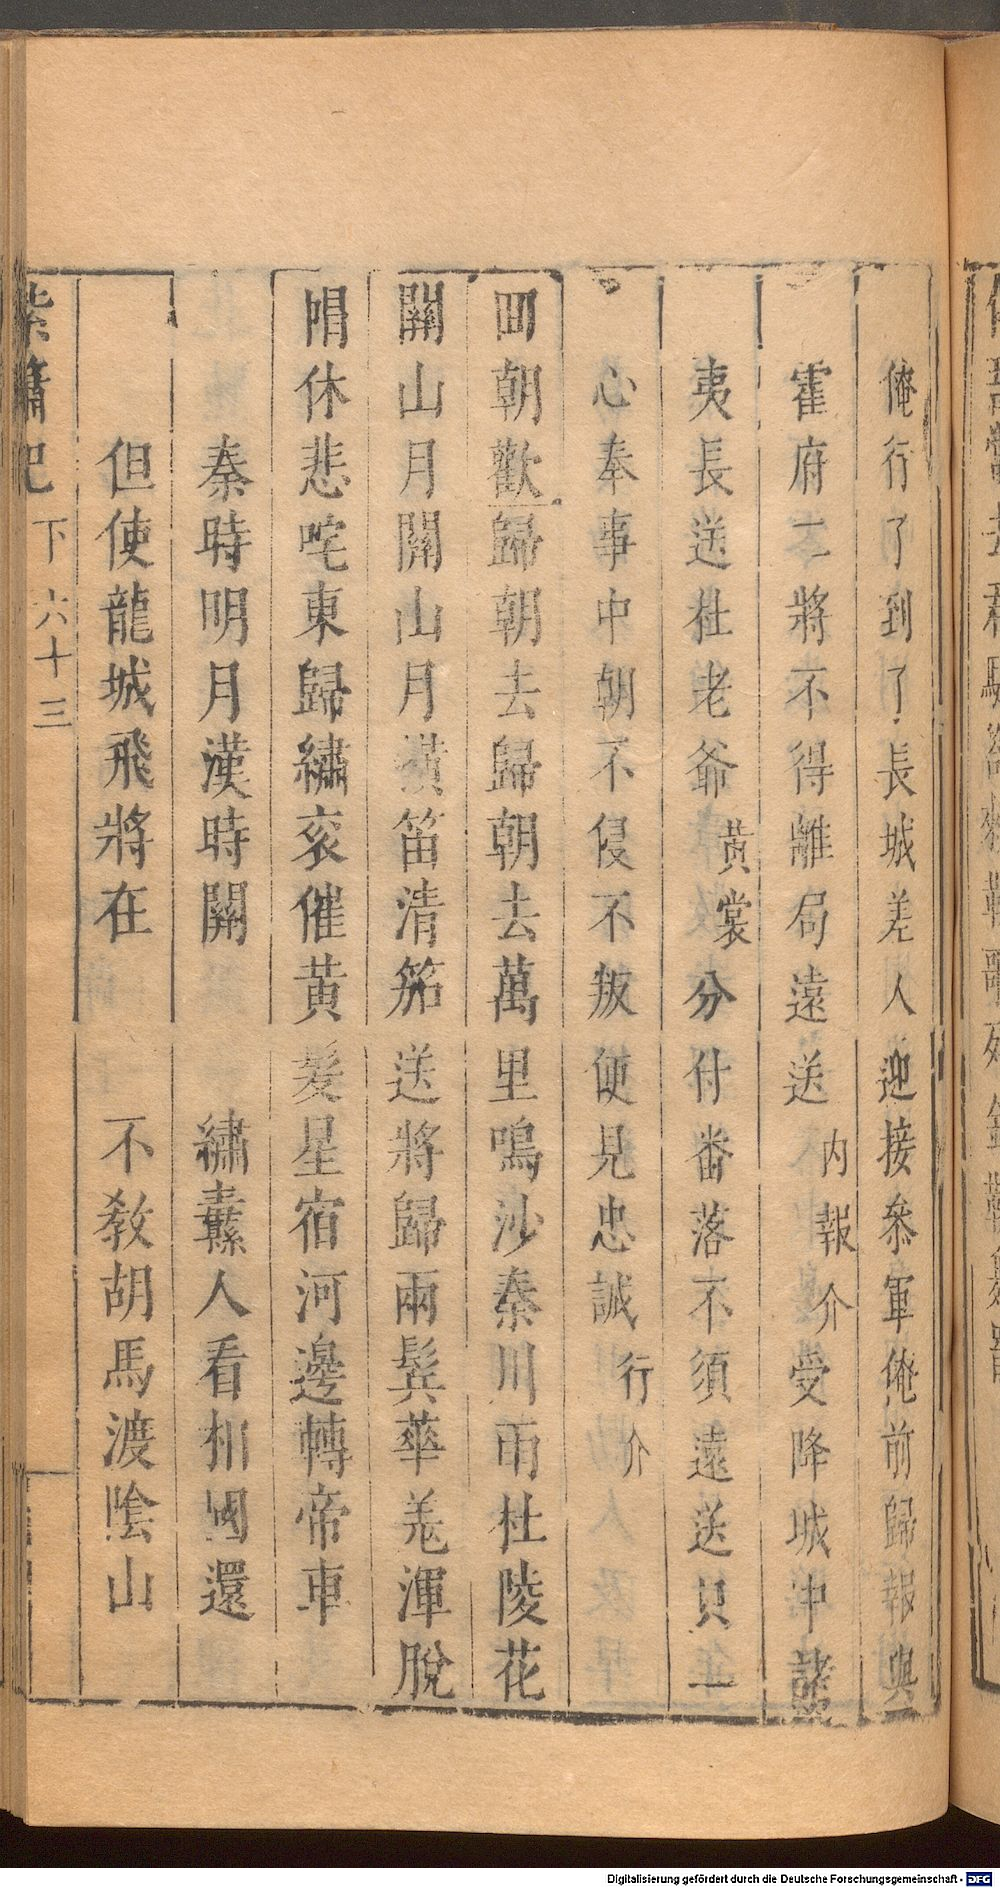 俺行了到了長城差人迎接叅軍俺前歸報與
霍府二將不得離局遠送内報介受降城中諸
夷長送杜老爺黃裳分付番落不須遠送只一
心奉事中朝不侵不叛便見忠誠行介
回朝歡歸朝去歸朝去萬里鳴沙秦川雨杜陵花
關山月關山月橫笛清笳送將歸兩鬂華羗渾脫
帽休悲咤東歸繡衮催黃髮星宿河邊轉帝車
秦時明月漢時關　繡纛人看相國還
但使龍城飛將在　不教胡馬渡陰山
紫簫記　下　六十三
Digitalisierung gefördert durch die Deutsche Forschungsgemeinschaft - DFG